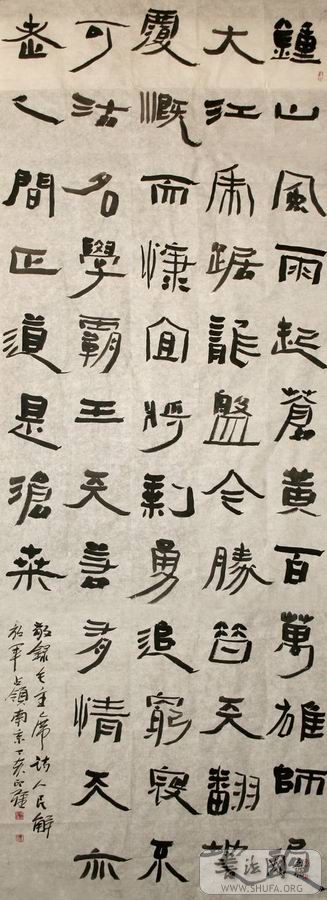 鐘山風雨起蒼黃百萬雄師過
大江虎踞龍盤今勝昔天翻地
覆慨而慷宜將剩勇追窮寇不
可沽名學霸王天若有情天亦
老人間正道是滄桑
敬錄毛主席詩人民解
放軍占領南京丁亥
WWW.SHUFA.ORG